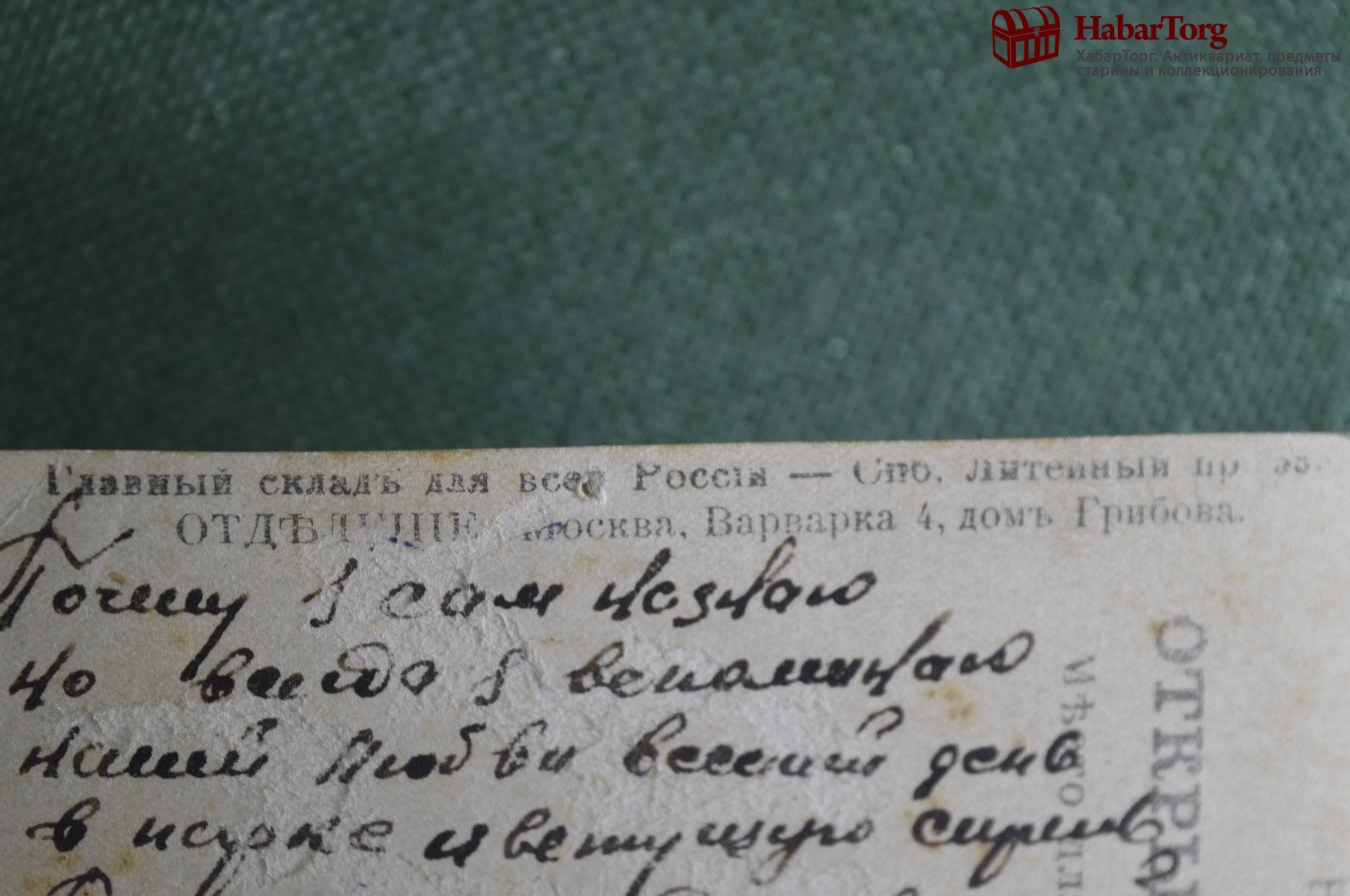 HabarTorg
ХабарТорг. Антиквариат, предметы
старины и коллекционирования
Главный складъ для всей Россіи — Спб. Литейный пр
ОТДѢЛЕНІЕ Москва, Варварка 4, домъ Грибова.
Почему я сам незнаю
но всегда я вспоминаю
нашей любви весений день
в парке цветущую сирень
ОТКРЫ
Мѣсто дл